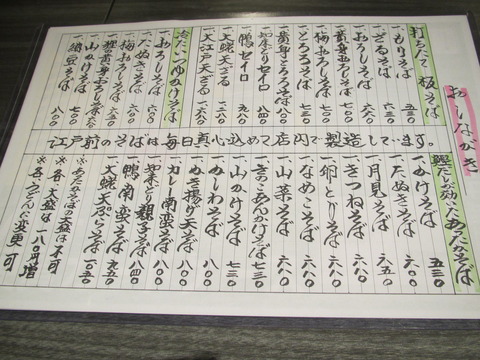 おしながき
打ちたて 板そば
一、もりそば 五三〇
一、ざるそば 六三〇
一、おろしそば 六八〇
一、梅おろしそば 七三〇
一、とろろそば 七三〇
一、黄身とろろそば 八〇〇
一、知床どりセイロ 八四〇
一、鴨セイロ 九五〇
一、大蝦天ざる
一、大江戸天ざる
冷たいつゆかけそば
一、おろしそば
一、たぬきそば 六〇〇
一、梅おろしそば 七五〇
一、山かけそば
一、納豆そば 八〇〇
江戸前のそばは毎日真心込めて店内で製造してます。
鰹だしの効いたあったかそば
一、かけそば 五三〇
一、たぬきそば 六〇〇
一、月見そば 六五〇
一、きつねそば 六八〇
一、卵とじそば 六八〇
一、なめこそば 六八〇
一、山菜そば 六八〇
一、きのこあんかけそば 七三〇
一、山かけそば 七三〇
一、かしわそば 八〇〇
一、かき揚げ天そば 八〇〇
一、カレー南蛮そば 八〇〇
一、知床どり親子そば 八四〇
一、鴨南蛮そば 八四〇
一、大蝦天ぷらそば 一〇五〇
※あたたかそばの大盛は不可
※各大盛は一八〇円増
※各うどんに変更可